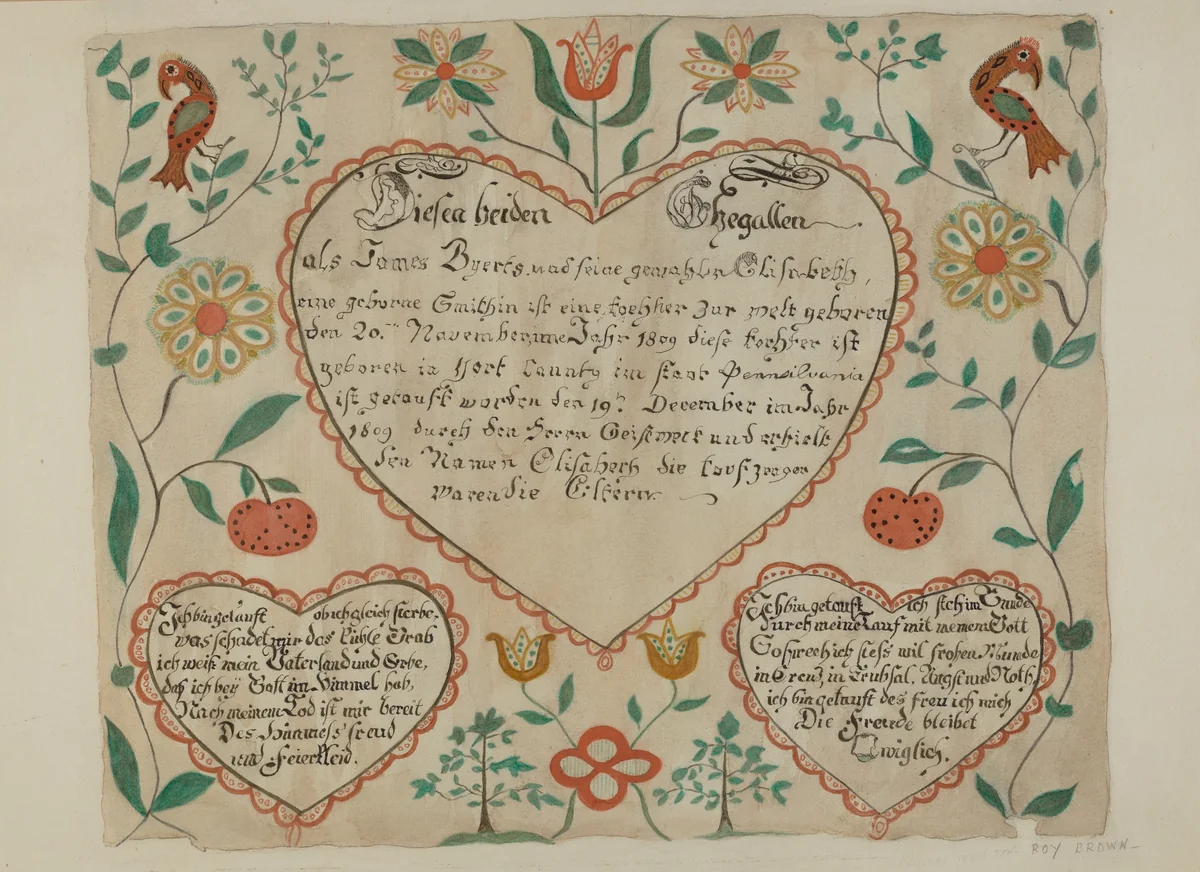 Diesen beiden Ehegatten
als James Byerts und seine gemahlin Elisabeth,
eine geborne Smithin ist eine tochter zur welt geboren
den 20.ten November im Jahr 1809 diese tochter ist
geboren in York County im staat Pennsilvania
ist getauft worden den 19.t December im Jahr
1809 durch den Herrn Geistweit und erhielt
den Namen Elisabeth die taufzeugen
waren die Eltern
Ich bin getauft ob ich gleich sterbe,
was schadet mir das kühle Grab
ich weiß mein Vaterland und Erbe,
daß ich bey Gott im Himmel hab,
Nach meinem Tod ist mir bereit
Des Himmels freud
und Feierkleid.
Ich bin getauft ich steh im Bunde
durch meine Tauf mit meinem Gott
So sprech ich stets mit frohem Munde
in Creuz, in Trübsal, Angst und Noth,
ich bin getauft des freu ich mich
Die Freude bleibet
Ewiglich.
ROY BROWN